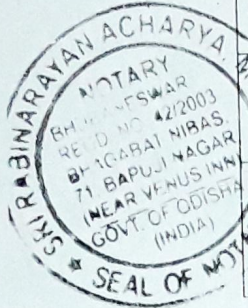 SRI RABINARAYAN ACHARYA, N
NOTARY
BHUBANESWAR
REGD. NO. 42/2003
BHAGABAT NIBAS,
71 BAPUJI NAGAR
(NEAR VENUS INN)
GOVT. OF ODISHA
(INDIA)
★ SEAL OF NOT